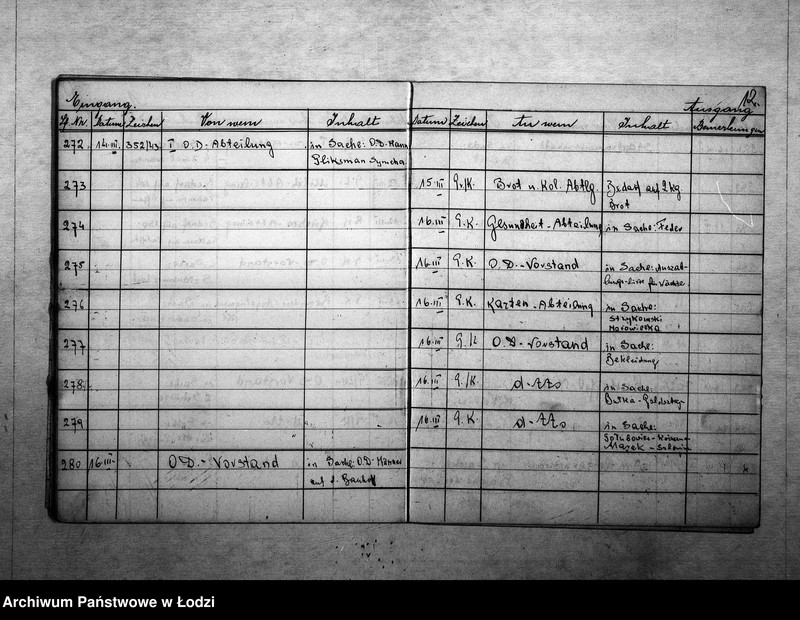 Eingang.
Lf. Nr. Datum Zeichen Von wem Inhalt
272 14.III 352/43 I O.D.-Abteilung in Sache: O.D.-Mann
Gliksman Symcha
273
274
275
276
277
278
279
280 16.III O.D.-Vorstand in Sache: O.D.-Männer
auf d. Bauhof
12.
Ausgang
Datum Zeichen An wem Inhalt Bemerkungen
15.III G./K. Brot u. Kol. Abtlg. Bedarf auf 2 kg
Brot
16.III G.K. Gesundheit-Abteilung in Sache: Feder
16.III G.K. O.D.-Vorstand in Sache:
16.III G.K. Karten-Abteilung in Sache:
Strykowski
16.III G./K. O.D.-Vorstand in Sache:
Bekleidung
16.III G./K. d-tto in Sache:
16.III G.K. d-tto in Sache:
Archiwum Państwowe w Łodzi